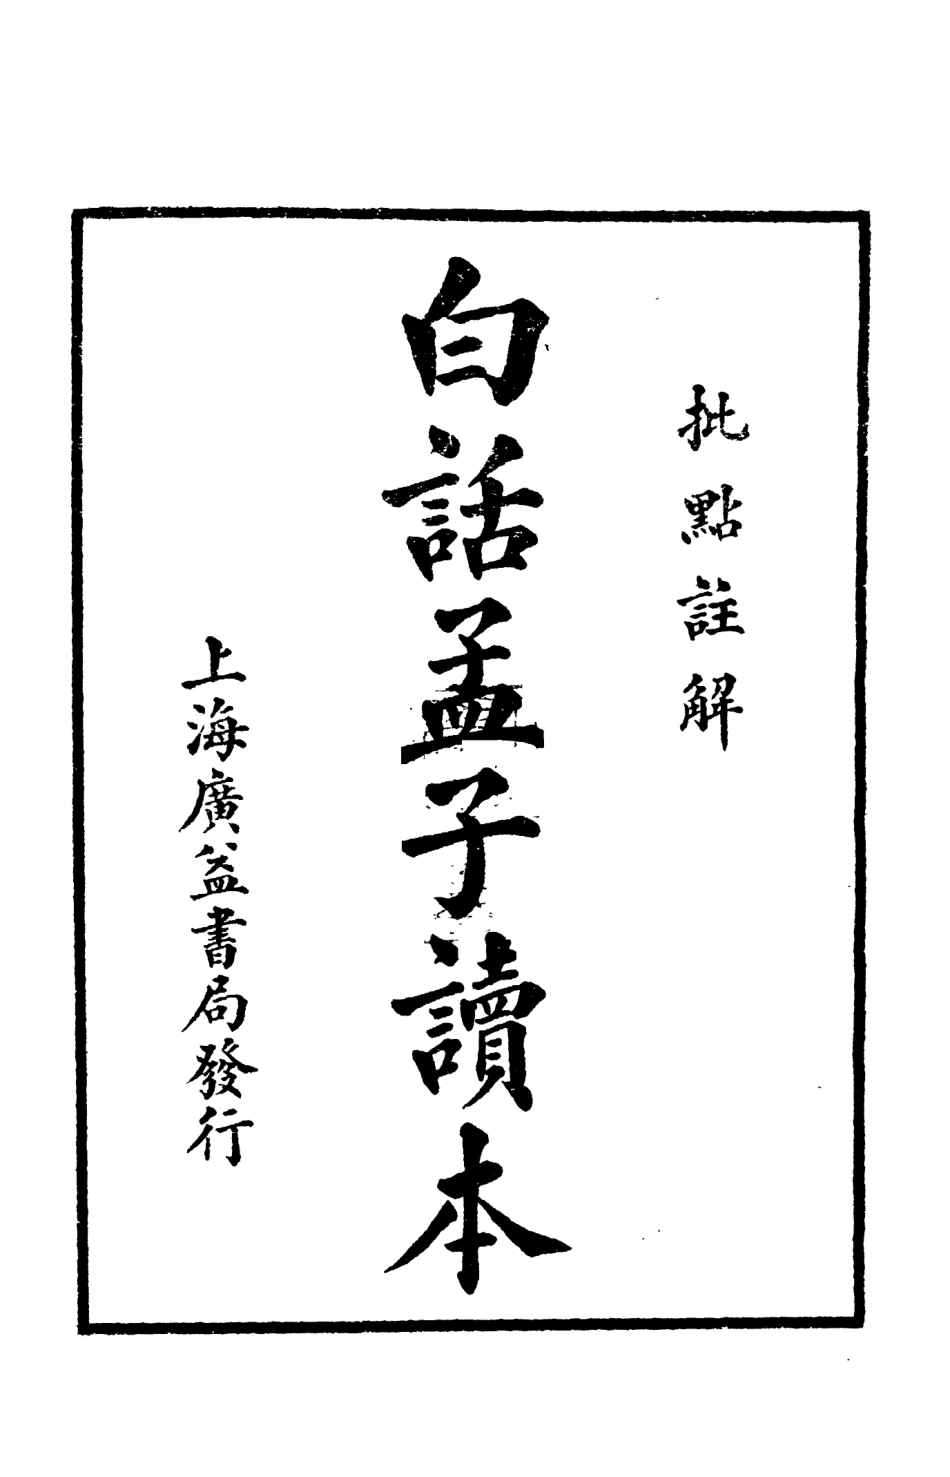 批點註解
白話孟子讀本
上海廣益書局發行